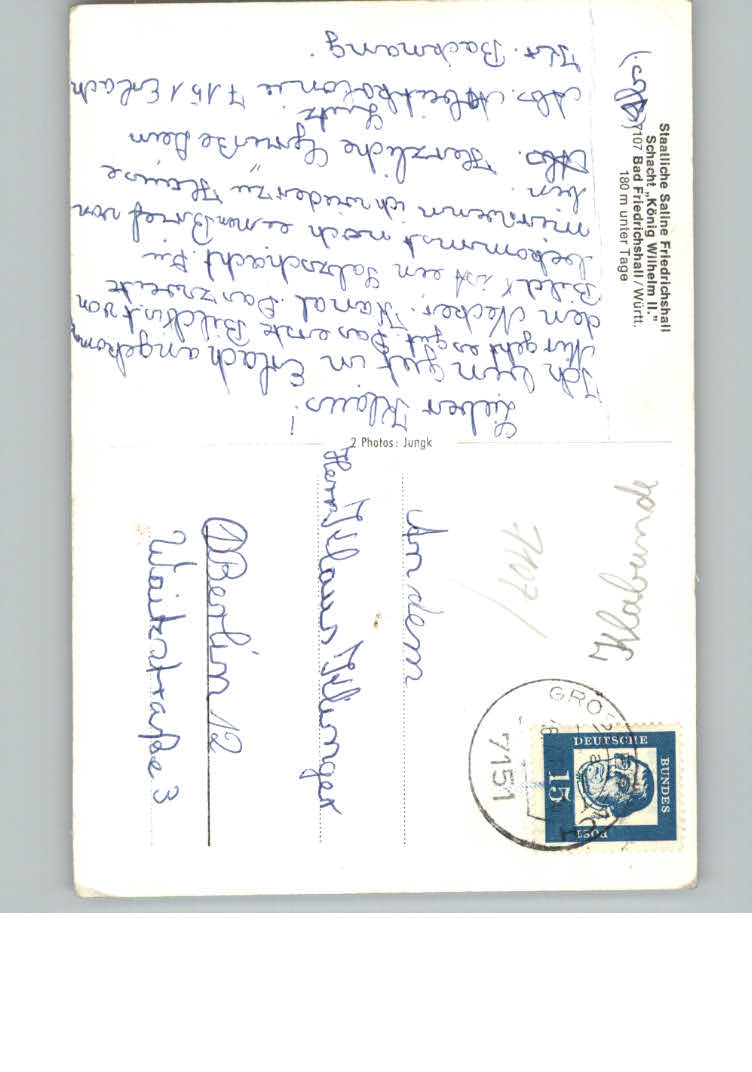 Staatliche Saline Friedrichshall
Schacht „König Wilhelm II."
7107 Bad Friedrichshall/Württ.
180 m unter Tage
Lieber Klaus!
Ich bin gut in Erlach angekomm
Mir geht es gut. Das erste Bild ist von
dem Necker-Kanal. Das zweite
Bild ist ein Salzschacht. Du
bekommst noch einen Brief von
mir wenn ich wieder zu Hause
bin.
Abs. Herzliche Grüße Dein
Lutz
Abs. 7151 Erlach
Kr. Backnang.
2 Photos: Jungk
An dem
Herrn Klaus Klinger
1 Berlin 12
Waitzstraße 3
7107/
Klabunde
DEUTSCHE
BUNDES
POST
15
7151